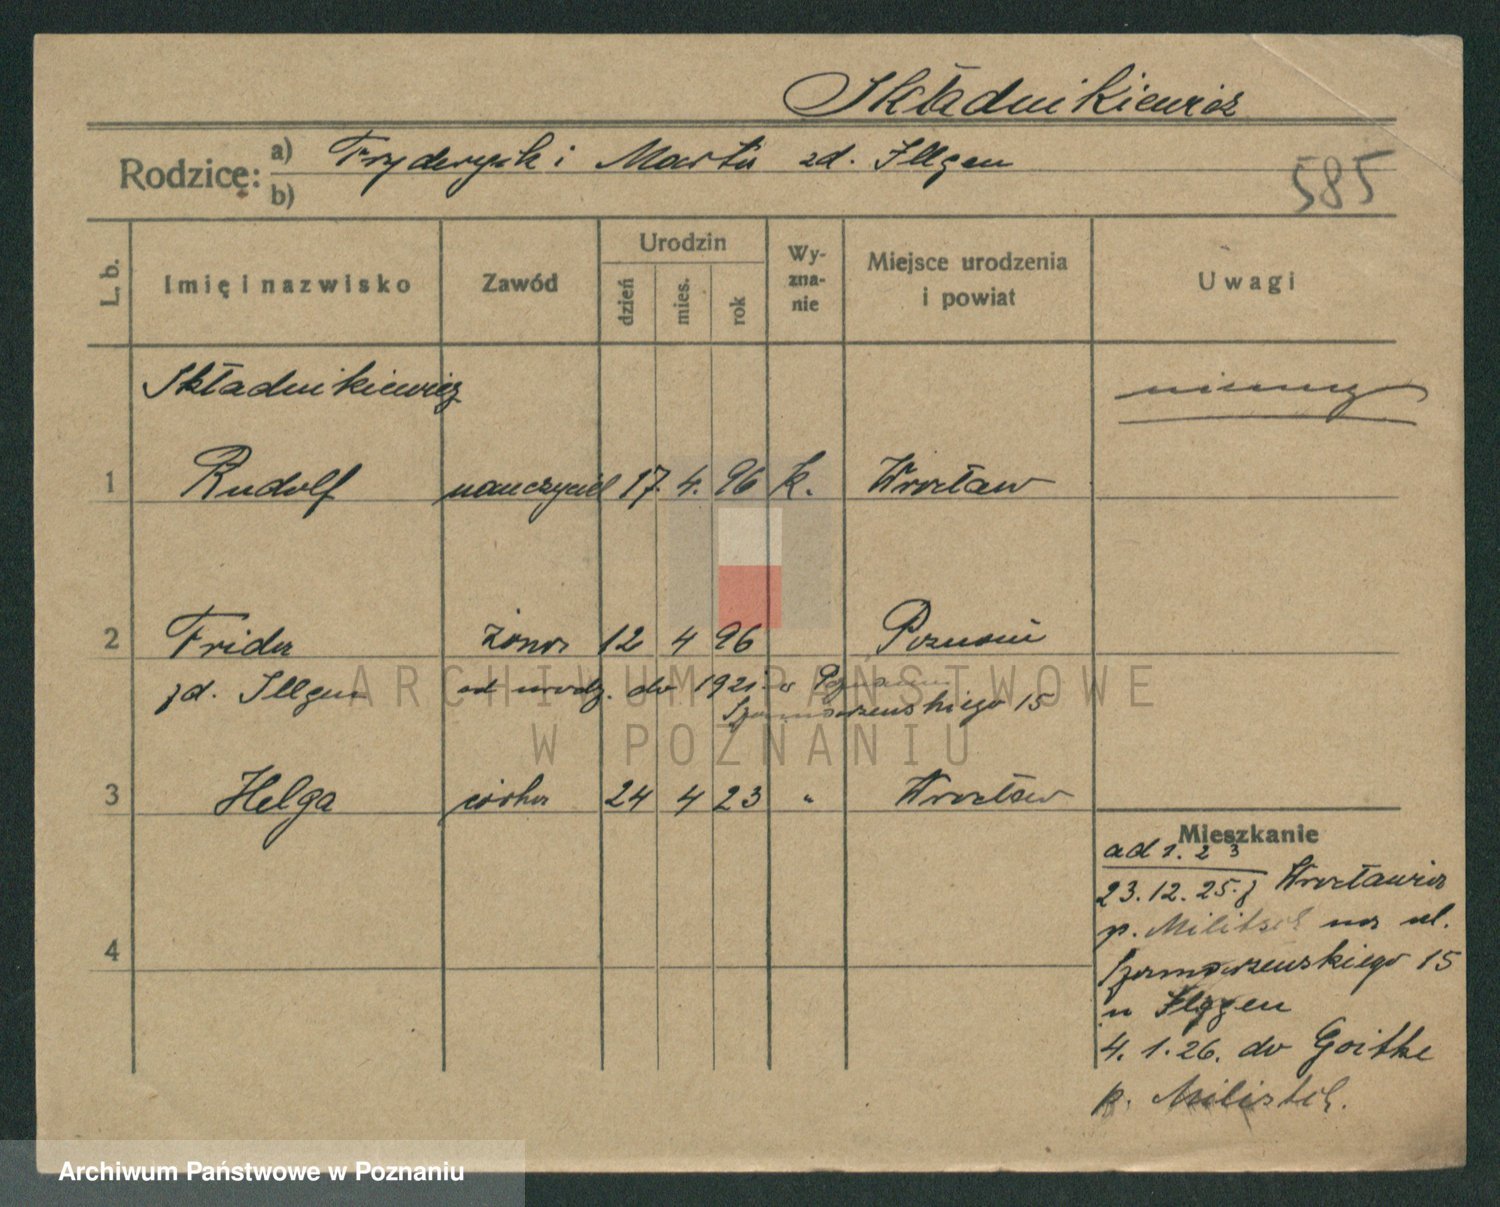 Składnikiewicz
Rodzice: a) Fryderyk i Marta zd. Illgen
b)
585
L. b.
Imię i nazwisko
Zawód
Urodzin
dzień
mies.
rok
Wy-
zna-
nie
Miejsce urodzenia
i powiat
Uwagi
Składnikiewicz
niemcy
1 Rudolf nauczyciel 17. 4. 96 k. Wrocław
2 Frida żona 12 4 96 Poznań
zd. Illgen od urodz. do 1921 w Poznaniu
Szamarzewskiego 15
3 Helga córka 24 4 23 " Wrocław
4
Mieszkanie
ad 1. 2 3
23.12.25. z
p. Militsch na ul.
Szamarzewskiego 15
u Illgen
4. 1. 26. do Goitke
p. Militsch.
ARCHIWUM PAŃSTWOWE
W POZNANIU
Archiwum Państwowe w Poznaniu